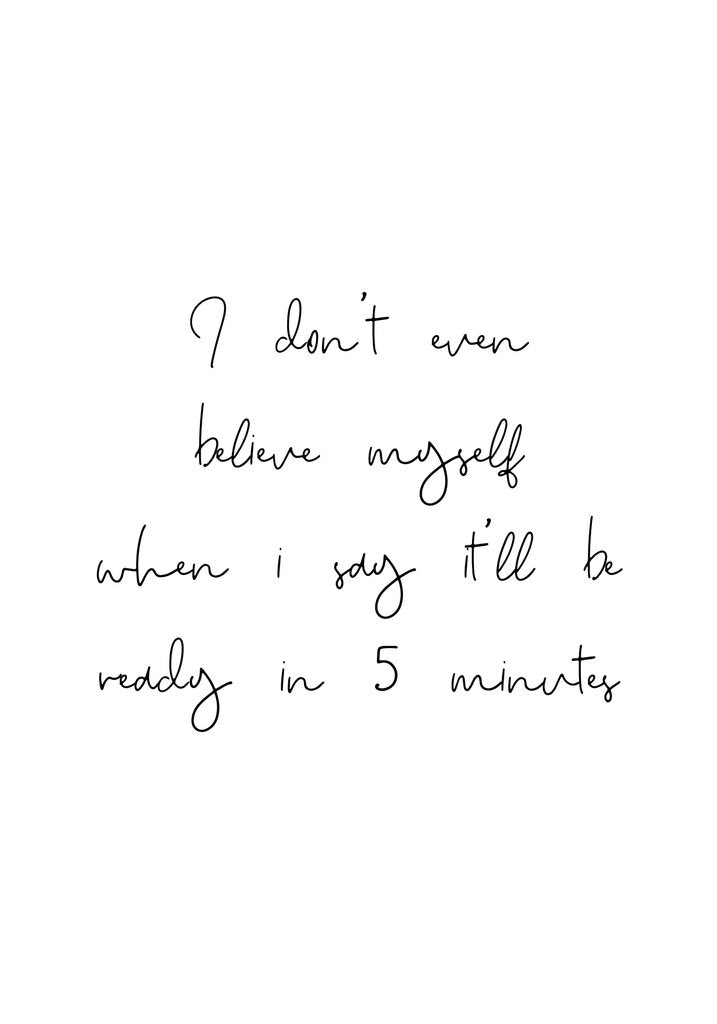 I don't even
believe myself
when i say it'll be
ready in 5 minutes